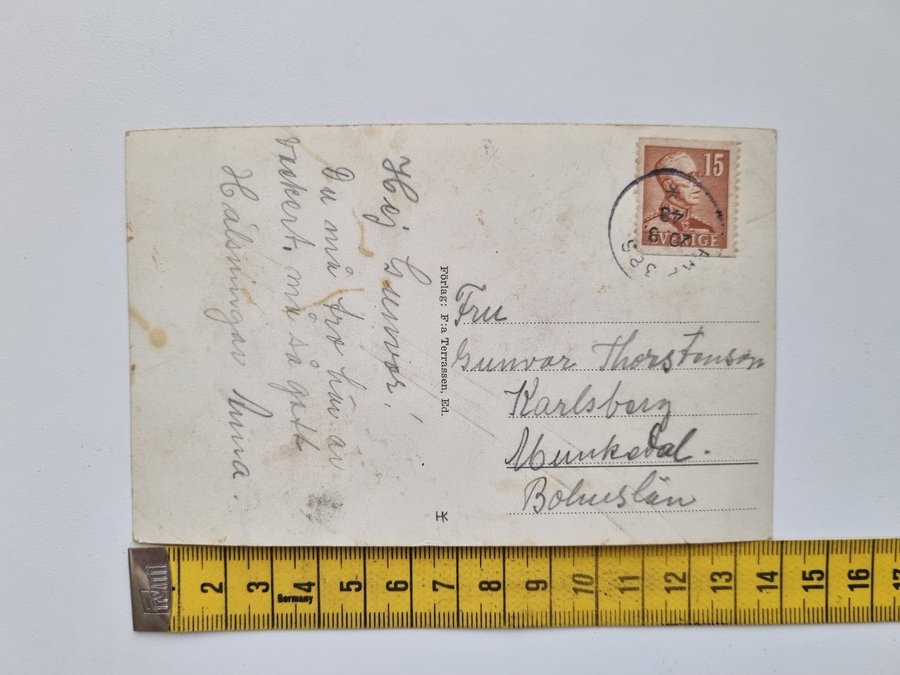 Hej Gunvor!
Du må tro här är
vackert, må så gott
Hälsningar Anna.
Förlag: F:a Terrassen, Ed.
15
SVERIGE
43
Fru
Gunvor Thorstenson
Karlsberg
Munkedal.
Bohuslän
2 3 4 5 6 7 8 9 10 11 12 13 14 15 16 17
Germany